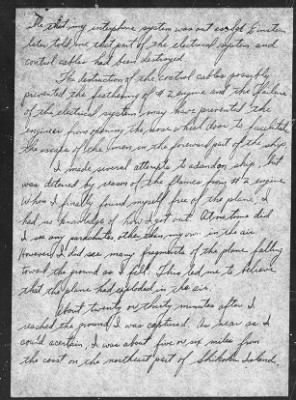 that my interphone system was out
later told me that part of the electrical system and
control cables had been destroyed.
The destruction of the control cables possibly
prevented the feathering of #2 engine and the failure
of the electrical system may have prevented the
engineer from opening the nose wheel door to facilitate
the escape of the men in the forward part of the ship.
I made several attempts to abandon ship but
was deterred by reason of the flames from #2 engine.
When I finally found myself free of the plane, I
had no knowledge of how I got out. At no time did
I see any parachutes other than my own in the air.
However I did see many fragments of the plane falling
toward the ground as I fell. This led me to believe
that the plane had exploded in the air.
About twenty or thirty minutes after I
reached the ground, I was captured. As near as I
could acertain, I was about five or six miles from
the coast on the northeast part of Shikoku Island.